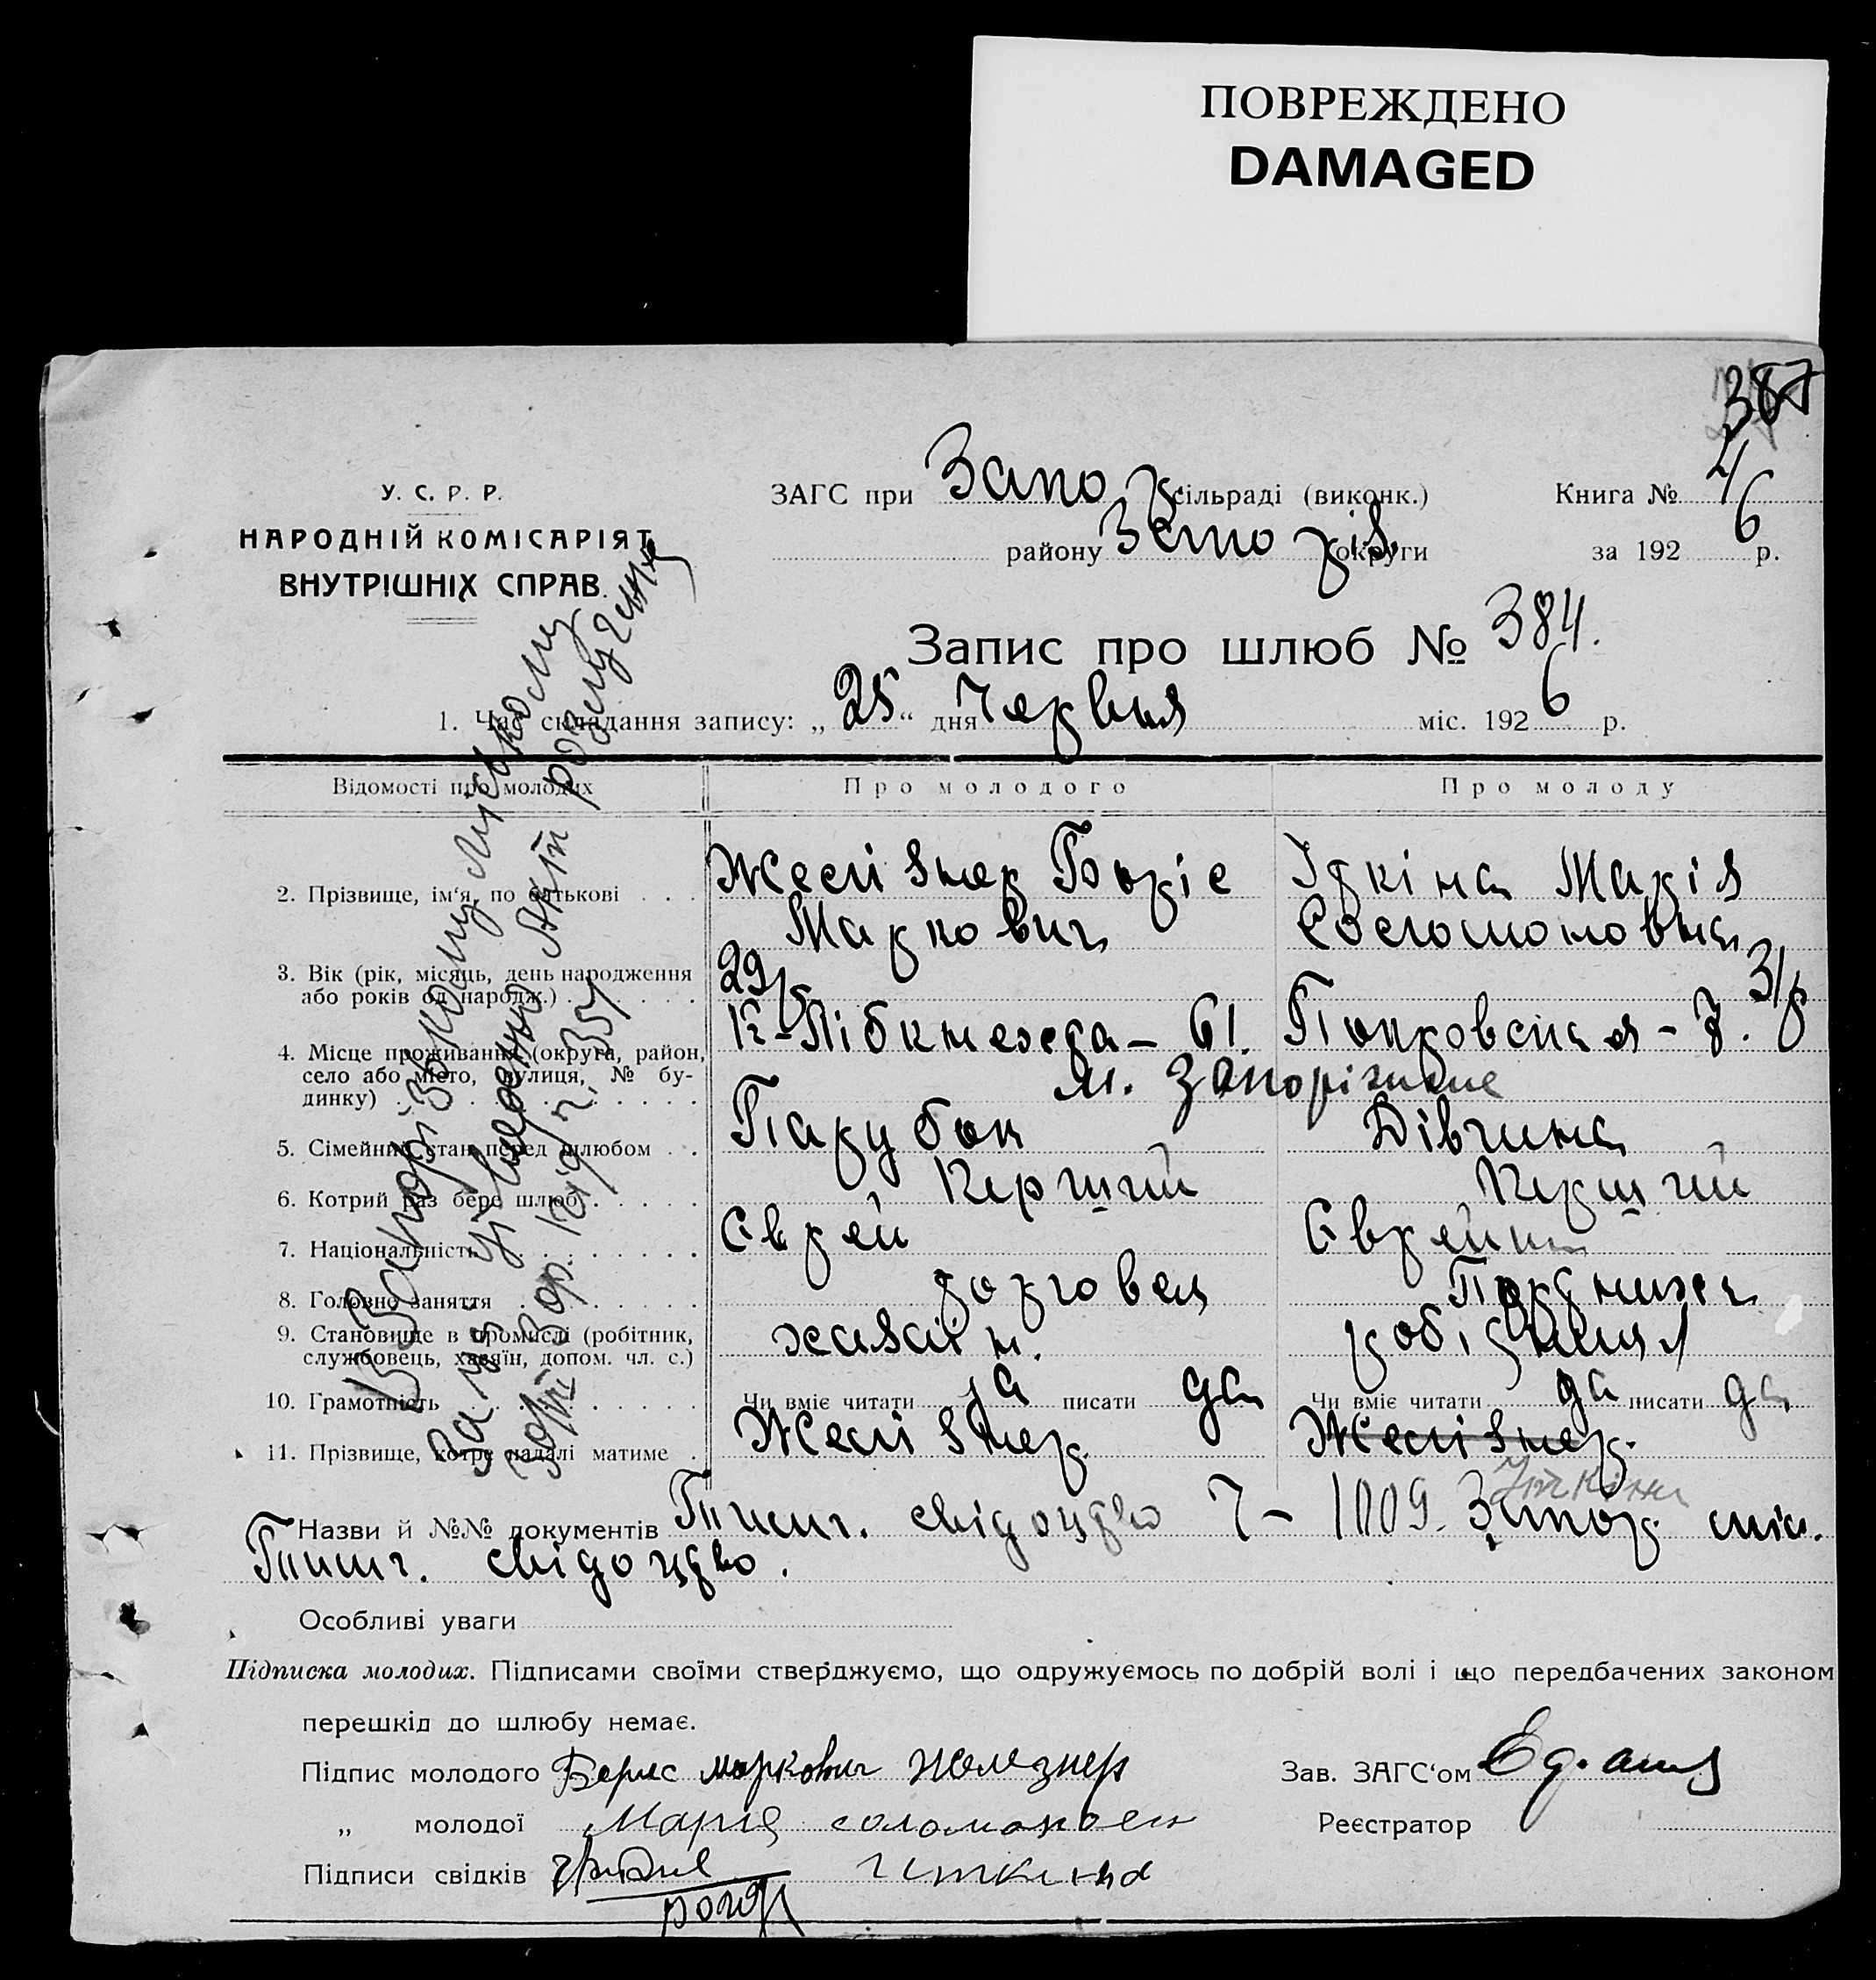 ПОВРЕЖДЕНО
DAMAGED
387
У. С. Р. Р.
НАРОДНІЙ КОМІСАРІЯТ
ВНУТРІШНІХ СПРАВ.
ЗАГС при Запор сільраді (виконк.) Книга № 4
району Запоріз округи за 1926 р.
Запис про шлюб № 384.
1. Час складання запису: „25“ дня Червня міс. 1926 р.
Відомості про молодих Про молодого Про молоду
2. Прізвище, ім'я, по батькові . . . Желізнер Боріс Іткіна Марія
Маркович Соломоновна
3. Вік (рік, місяць, день народження
або років од народж.) 29/5 31/8
4. Місце проживання (округа, район, К-Лібкнехта – 61.
село або місто, вулиця, № бу-
динку) м. Запоріжжя
5. Сімейний стан перед шлюбом . . Парубок Дівчина
6. Котрий раз бере шлюб Перший Перший
7. Національність Єврей Єврейка
8. Головне заняття торговля
9. Становище в промислі (робітник,
службовець, хазяїн, допом. чл. с.) хазаїн. робітниця
10. Грамотність Чи вміє читати да писати да Чи вміє читати да писати да
11. Прізвище, котре надалі матиме . Желізнер Желізнер
Іткіна
Назви й №№ документів свідоцтво 7 – 1009. Запор
свідоцтво.
Особливі уваги
Підписка молодих. Підписами своїми стверджуємо, що одружуємось по добрій волі і що передбачених законом
перешкід до шлюбу немає.
Підпис молодого Борис Маркович Железнер Зав. ЗАГС'ом
„ молодої Мария Реєстратор
Підписи свідків Иткина
В Запорізькому міському
Загзі зроблено акт розлучення